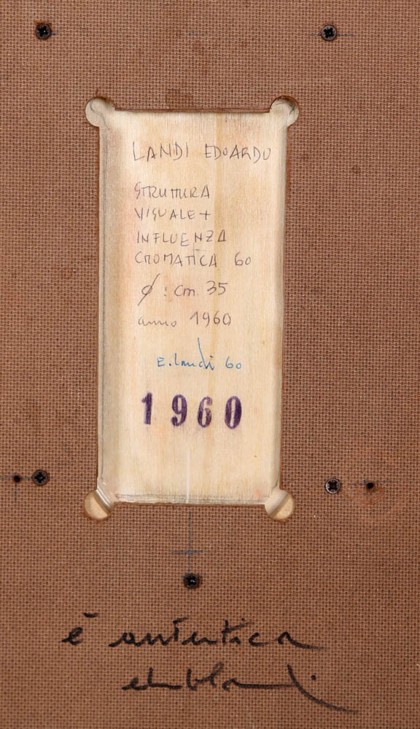 LANDI EDOARDO
STRUTTURA
VISUALE +
INFLUENZA
CROMATICA 60
ø : cm. 35
anno 1960
E. Landi 60
1960
è autentica